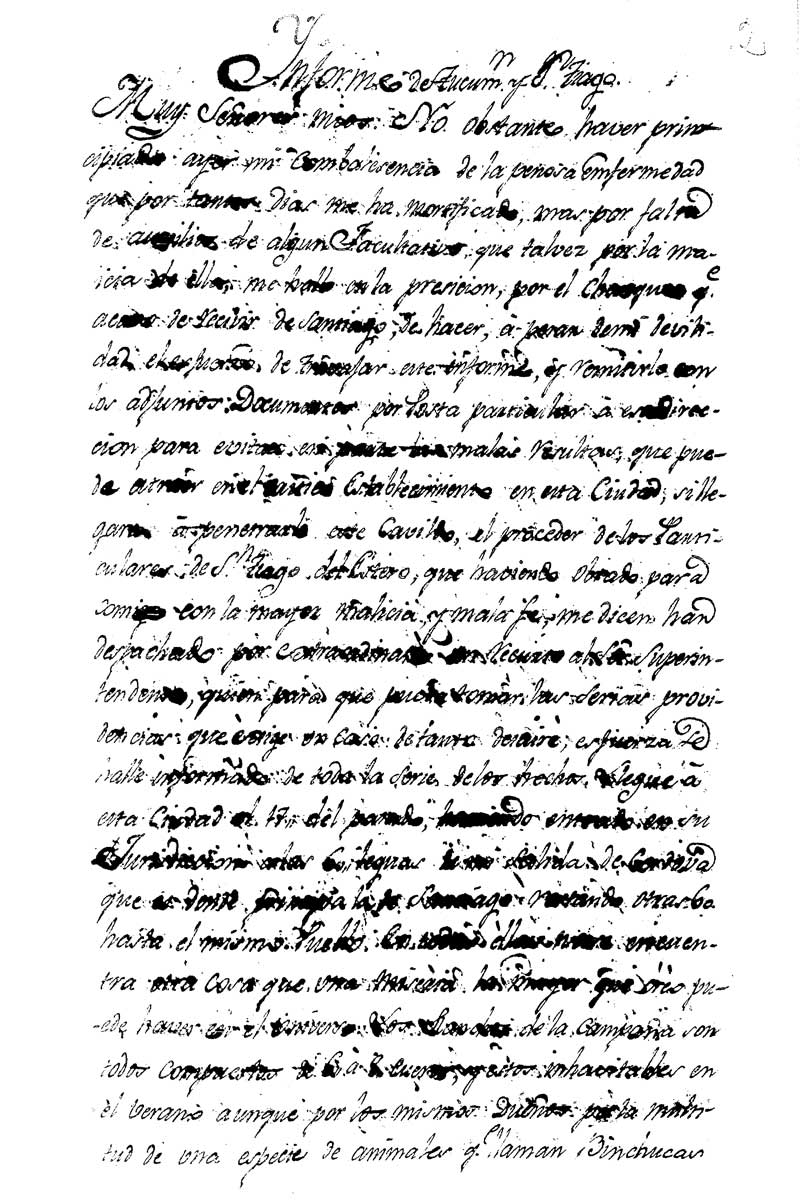 2
Informe de Tucumn y Sn Tiago.
Muy Señores mios: No obstante haver prin-
cipiado ayer mi Combalesencia de la penosa enfermedad
que por tantos Dias me ha mortificado, mas por falta
de auxilios de algun Facultativo, que talvez por la ma-
licia de ella; me hallo en la presicion, por el Chasque qe
acavo de recivir de Santiago, de hacer, á pesar de mi devili-
dad el esfuerzo de travajar este informe, y remitirlo con
los adjuntos Documentos por Posta particular á esa direc-
cion para evitar en parte las malas resultas, que pue-
de atraer en el Establecimiento en esta Ciudad, si lle-
gara á penetrarlo este Cavildo, el proceder de los Parti-
culares de Sn Tiago del Estero, que haviendo obrado para
comigo con la mayor malicia, y mala fe, me dicen han
despachado por extraordinario un recurso al Sor Superin-
tendente, quien para que pueda tomar las serias provi-
dencias que exige un caso de tanto desaire, es fuerza se
halle informado de toda la serie de los hechos. Llegué á
esta Ciudad el 17,, del pasado, haviendo entrado en su
Jurisdicion a las 60 leguas de mi salida de Cordova
que es donde principia la de Santiago restando otras 60
hasta el mismo Pueblo. En todas ellas no se encuen-
tra otra cosa que una miseria la mayor que creo pu-
ede haver en el universo. Los Ranchos de la Campaña son
todos compuestos de 6 á 8 cueros, y estos inhavitables en
el verano aunque por los mismos Dueños por la multi-
tud de una especie de animales qe llaman Binchucas